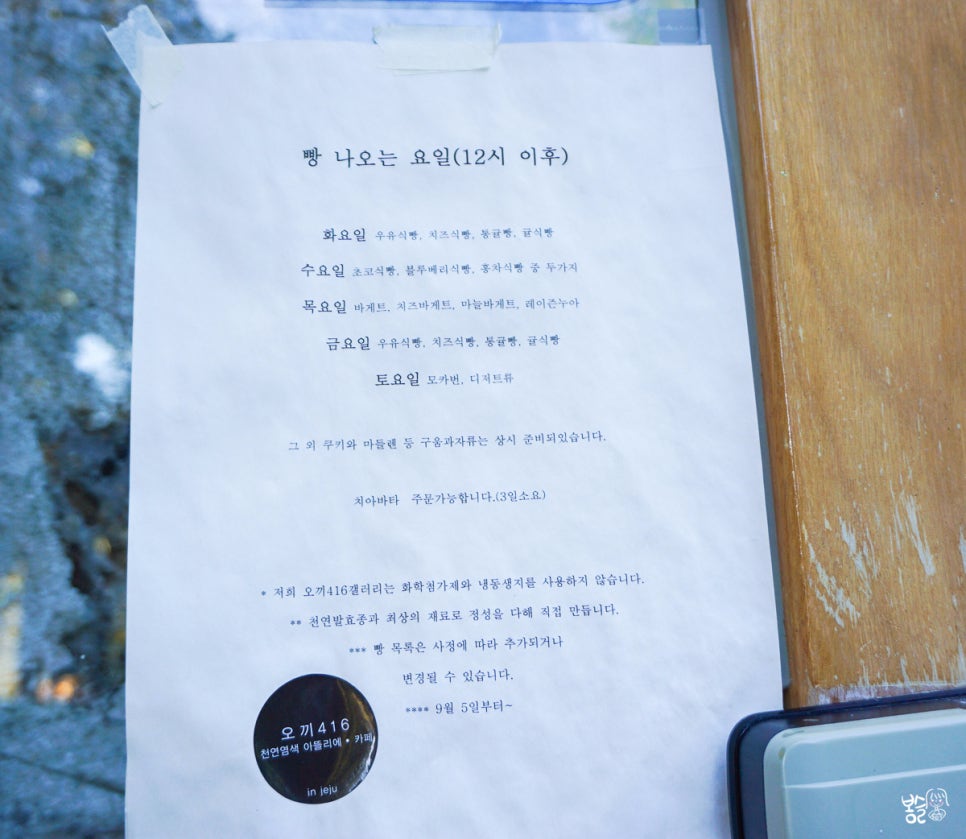 빵 나오는 요일(12시 이후)
화요일 우유식빵, 치즈식빵, 통귤빵, 귤식빵
수요일 초코식빵, 블루베리식빵, 홍차식빵 중 두가지
목요일 바게트, 치즈바게트, 마늘바게트, 레이즌누아
금요일 우유식빵, 치즈식빵, 통귤빵, 귤식빵
토요일 모카번, 디저트류
그 외 쿠키와 마들렌 등 구움과자류는 상시 준비되있습니다.
치아바타 주문가능합니다.(3일소요)
* 저희 오끼416갤러리는 화학첨가제와 냉동생지를 사용하지 않습니다.
** 천연발효종과 최상의 재료로 정성을 다해 직접 만듭니다.
*** 빵 목록은 사정에 따라 추가되거나
변경될 수 있습니다.
**** 9월 5일부터~
오끼416
천연염색 아뜰리에 • 카페
in jeju